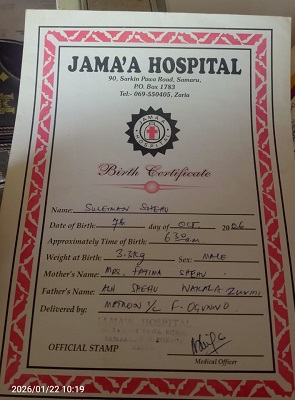 JAMA'A HOSPITAL
90, Sarkin Pawa Road, Samaru,
P.O. Box 1783
Tel:- 069-550405, Zaria
JAMA'A
HOSPITAL
Birth Certificate
Name: SULEIMAN SHEHU
Date of Birth: 7th day of OCT 2006
Approximately Time of Birth: 6:30am
Weight at Birth: 3.3kg Sex: MALE
Mother's Name: MRS. FATIMA SHEHU
Father's Name: ALH SHEHU WAKALA ZURMI
Delivered by: MATRON I/C F. OGUNWO
JAMA'A HOSPITAL
OFFICIAL STAMP
Medical Officer
2026/01/22 10:19